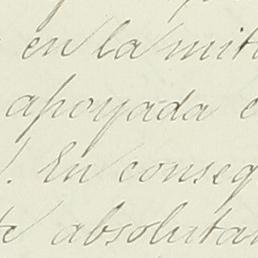 en la mit
apoyada e
. En conseq
te absolutam